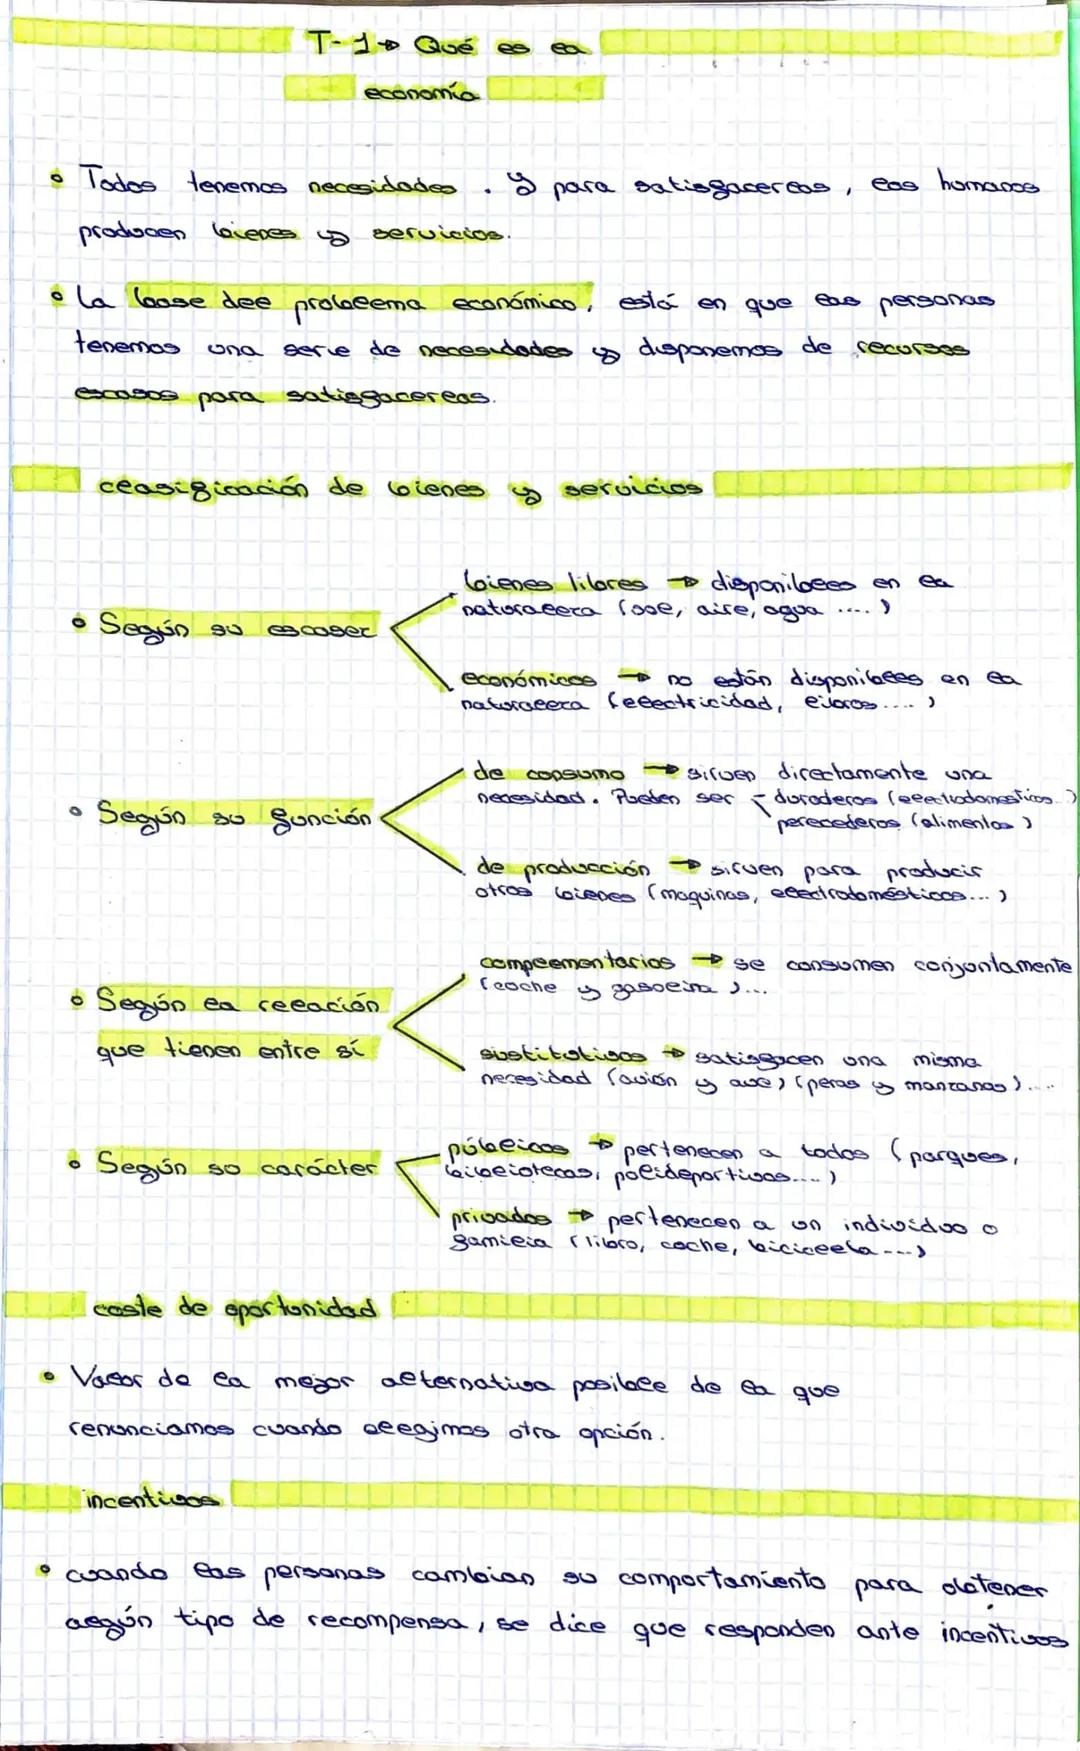 T-1→ Qué es la
economía
• Todos tenemos necesidades. Y para satisfacerlas, los humanos
producen bienes y servicios.
• La base del problema económico, está en que las personas
tenemos una serie de necesidades y disponemos de recursos
escasos para satisfacerlas.
clasificación de bienes y servicios
• Según su escasez
bienes libres → disponibles en la
naturaleza (sol, aire, agua ....)
económicos → no están disponibles en la
naturaleza (electricidad, libros....)
• Según su función
de consumo → sirven directamente una
necesidad. Pueden ser - duraderos (electrodomésticos..)
perecederos (alimentos)
de producción → sirven para producir
otros bienes (maquinas, electrodomésticos...)
• Según la relación
que tienen entre sí
complementarios → se consumen conjuntamente
(coche y gasolina)...
sustitutivos → satisfacen una misma
necesidad (avión y ave) (peras y manzanas)....
• Según su carácter
públicos → pertenecen a todos (parques,
bibliotecas, polideportivos....)
privados → pertenecen a un individuo o
familia (libro, coche, bicicleta ...)
coste de oportunidad
• Valor de la mejor alternativa posible de la que
renunciamos cuando elegimos otra opción.
incentivos
• cuando las personas cambian su comportamiento para obtener
algún tipo de recompensa, se dice que responden ante incentivos